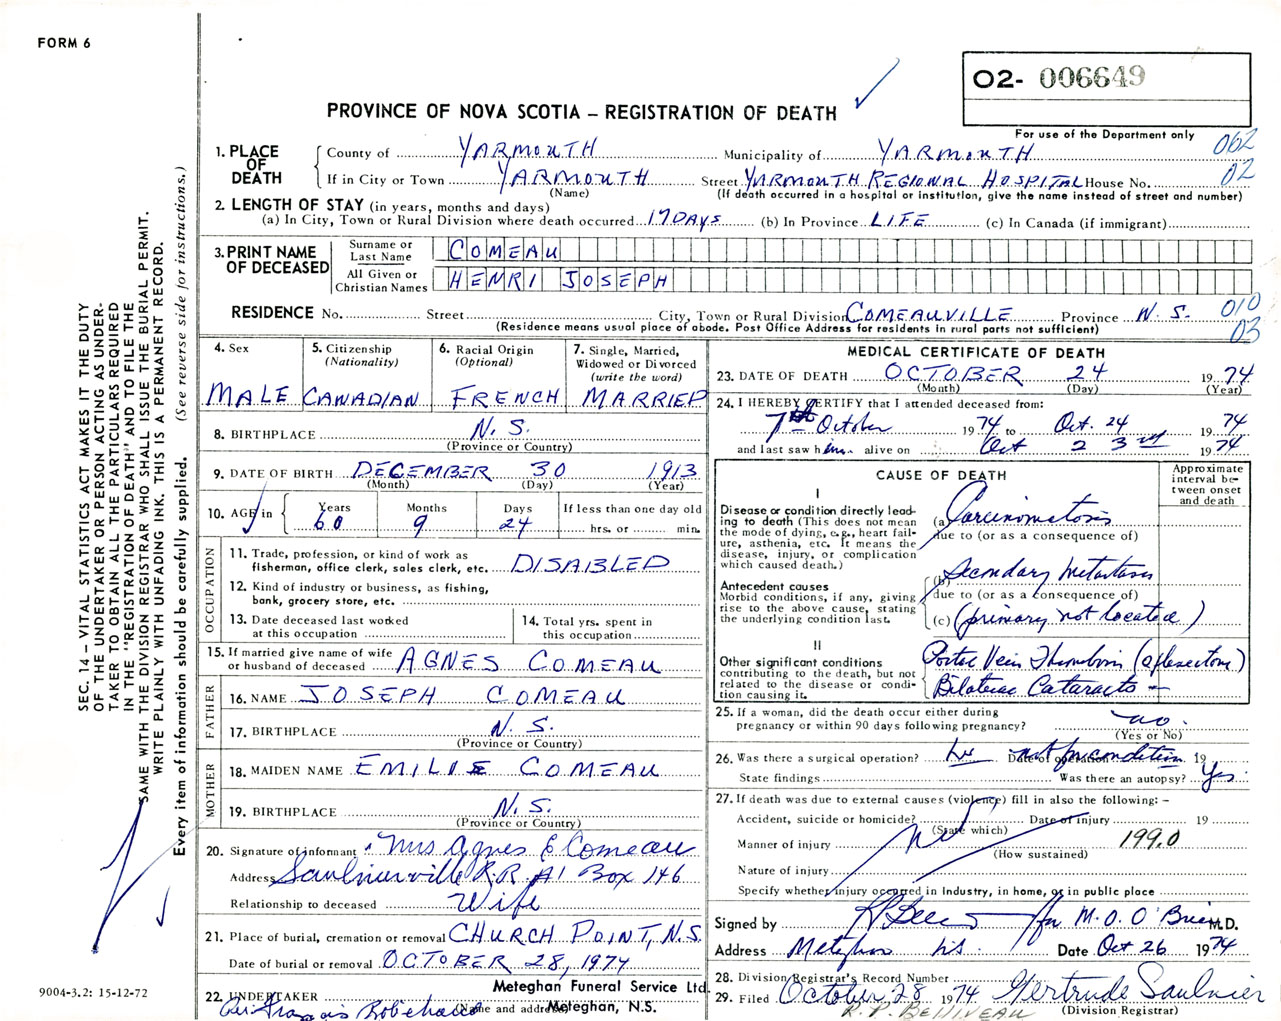 FORM 6
O2- 006649
PROVINCE OF NOVA SCOTIA – REGISTRATION OF DEATH
For use of the Department only
062
02
1. PLACE OF DEATH
County of YARMOUTH Municipality of YARMOUTH
If in City or Town YARMOUTH Street YARMOUTH REGIONAL HOSPITAL House No.
(Name) (If death occurred in a hospital or institution, give the name instead of street and number)
2. LENGTH OF STAY (in years, months and days)
(a) In City, Town or Rural Division where death occurred 17 DAYS (b) In Province LIFE (c) In Canada (if immigrant)
3. PRINT NAME OF DECEASED
Surname or Last Name COMEAU
All Given or Christian Names HENRI JOSEPH
RESIDENCE No. Street City, Town or Rural Division COMEAUVILLE Province N. S. 010
03
(Residence means usual place of abode. Post Office Address for residents in rural parts not sufficient)
4. Sex MALE
5. Citizenship (Nationality) CANADIAN
6. Racial Origin (Optional) FRENCH
7. Single, Married, Widowed or Divorced (write the word) MARRIED
8. BIRTHPLACE N. S.
(Province or Country)
9. DATE OF BIRTH DECEMBER 30 1913
(Month) (Day) (Year)
10. AGE in Years 60 Months 9 Days 24 If less than one day old hrs. or min.
OCCUPATION
11. Trade, profession, or kind of work as
fisherman, office clerk, sales clerk, etc. DISABLED
12. Kind of industry or business, as fishing,
bank, grocery store, etc.
13. Date deceased last worked
at this occupation
14. Total yrs. spent in
this occupation
15. If married give name of wife
or husband of deceased AGNES COMEAU
FATHER
16. NAME JOSEPH COMEAU
17. BIRTHPLACE N. S.
(Province or Country)
MOTHER
18. MAIDEN NAME EMILIE COMEAU
19. BIRTHPLACE N. S.
(Province or Country)
20. Signature of informant Mrs Agnes E Comeau
Address Saulnierville R.R. #1 Box 146
Relationship to deceased Wife
21. Place of burial, cremation or removal CHURCH POINT, N.S.
Date of burial or removal OCTOBER 28, 1974
Meteghan Funeral Service Ltd.
22. UNDERTAKER Francis Robichaud
(Name and address) Meteghan, N.S.
MEDICAL CERTIFICATE OF DEATH
23. DATE OF DEATH OCTOBER 24 1974
(Month) (Day) (Year)
24. I HEREBY CERTIFY that I attended deceased from:
7th October 1974 to Oct. 24 1974
and last saw him alive on Oct 23rd 1974
CAUSE OF DEATH
Approximate interval between onset and death
I
Disease or condition directly leading to death (This does not mean the mode of dying, e.g., heart failure, asthenia, etc. It means the disease, injury, or complication which caused death.)
(a) Carcinomatosis
due to (or as a consequence of)
Antecedent causes
Morbid conditions, if any, giving rise to the above cause, stating the underlying condition last.
(b) Secondary metastases
due to (or as a consequence of)
(c) (primary not located)
II
Other significant conditions
contributing to the death, but not related to the disease or condition causing it.
Portal Vein Thrombosis
Bilateral Cataracts
25. If a woman, did the death occur either during
pregnancy or within 90 days following pregnancy? no.
(Yes or No)
26. Was there a surgical operation? Date of operation 19
State findings Was there an autopsy? Yes
27. If death was due to external causes (violence) fill in also the following: –
Accident, suicide or homicide? Date of injury 19
(State which)
Manner of injury 199.0
(How sustained)
Nature of injury
Specify whether injury occurred in Industry, in home, or in public place
Signed by for M. O. O'Brien M.D.
Address Meteghan N.S. Date Oct 26 1974
28. Division Registrar's Record Number
29. Filed October 28 1974 Gertrude Saulnier
R. P. BELLIVEAU (Division Registrar)
SEC. 14 – VITAL STATISTICS ACT MAKES IT THE DUTY
OF THE UNDERTAKER OR PERSON ACTING AS UNDER-
TAKER TO OBTAIN ALL THE PARTICULARS REQUIRED
IN THE "REGISTRATION OF DEATH" AND TO FILE THE
SAME WITH THE DIVISION REGISTRAR WHO SHALL ISSUE THE BURIAL PERMIT.
WRITE PLAINLY WITH UNFADING INK. THIS IS A PERMANENT RECORD.
Every item of information should be carefully supplied. (See reverse side for instructions.)
9004-3.2: 15-12-72